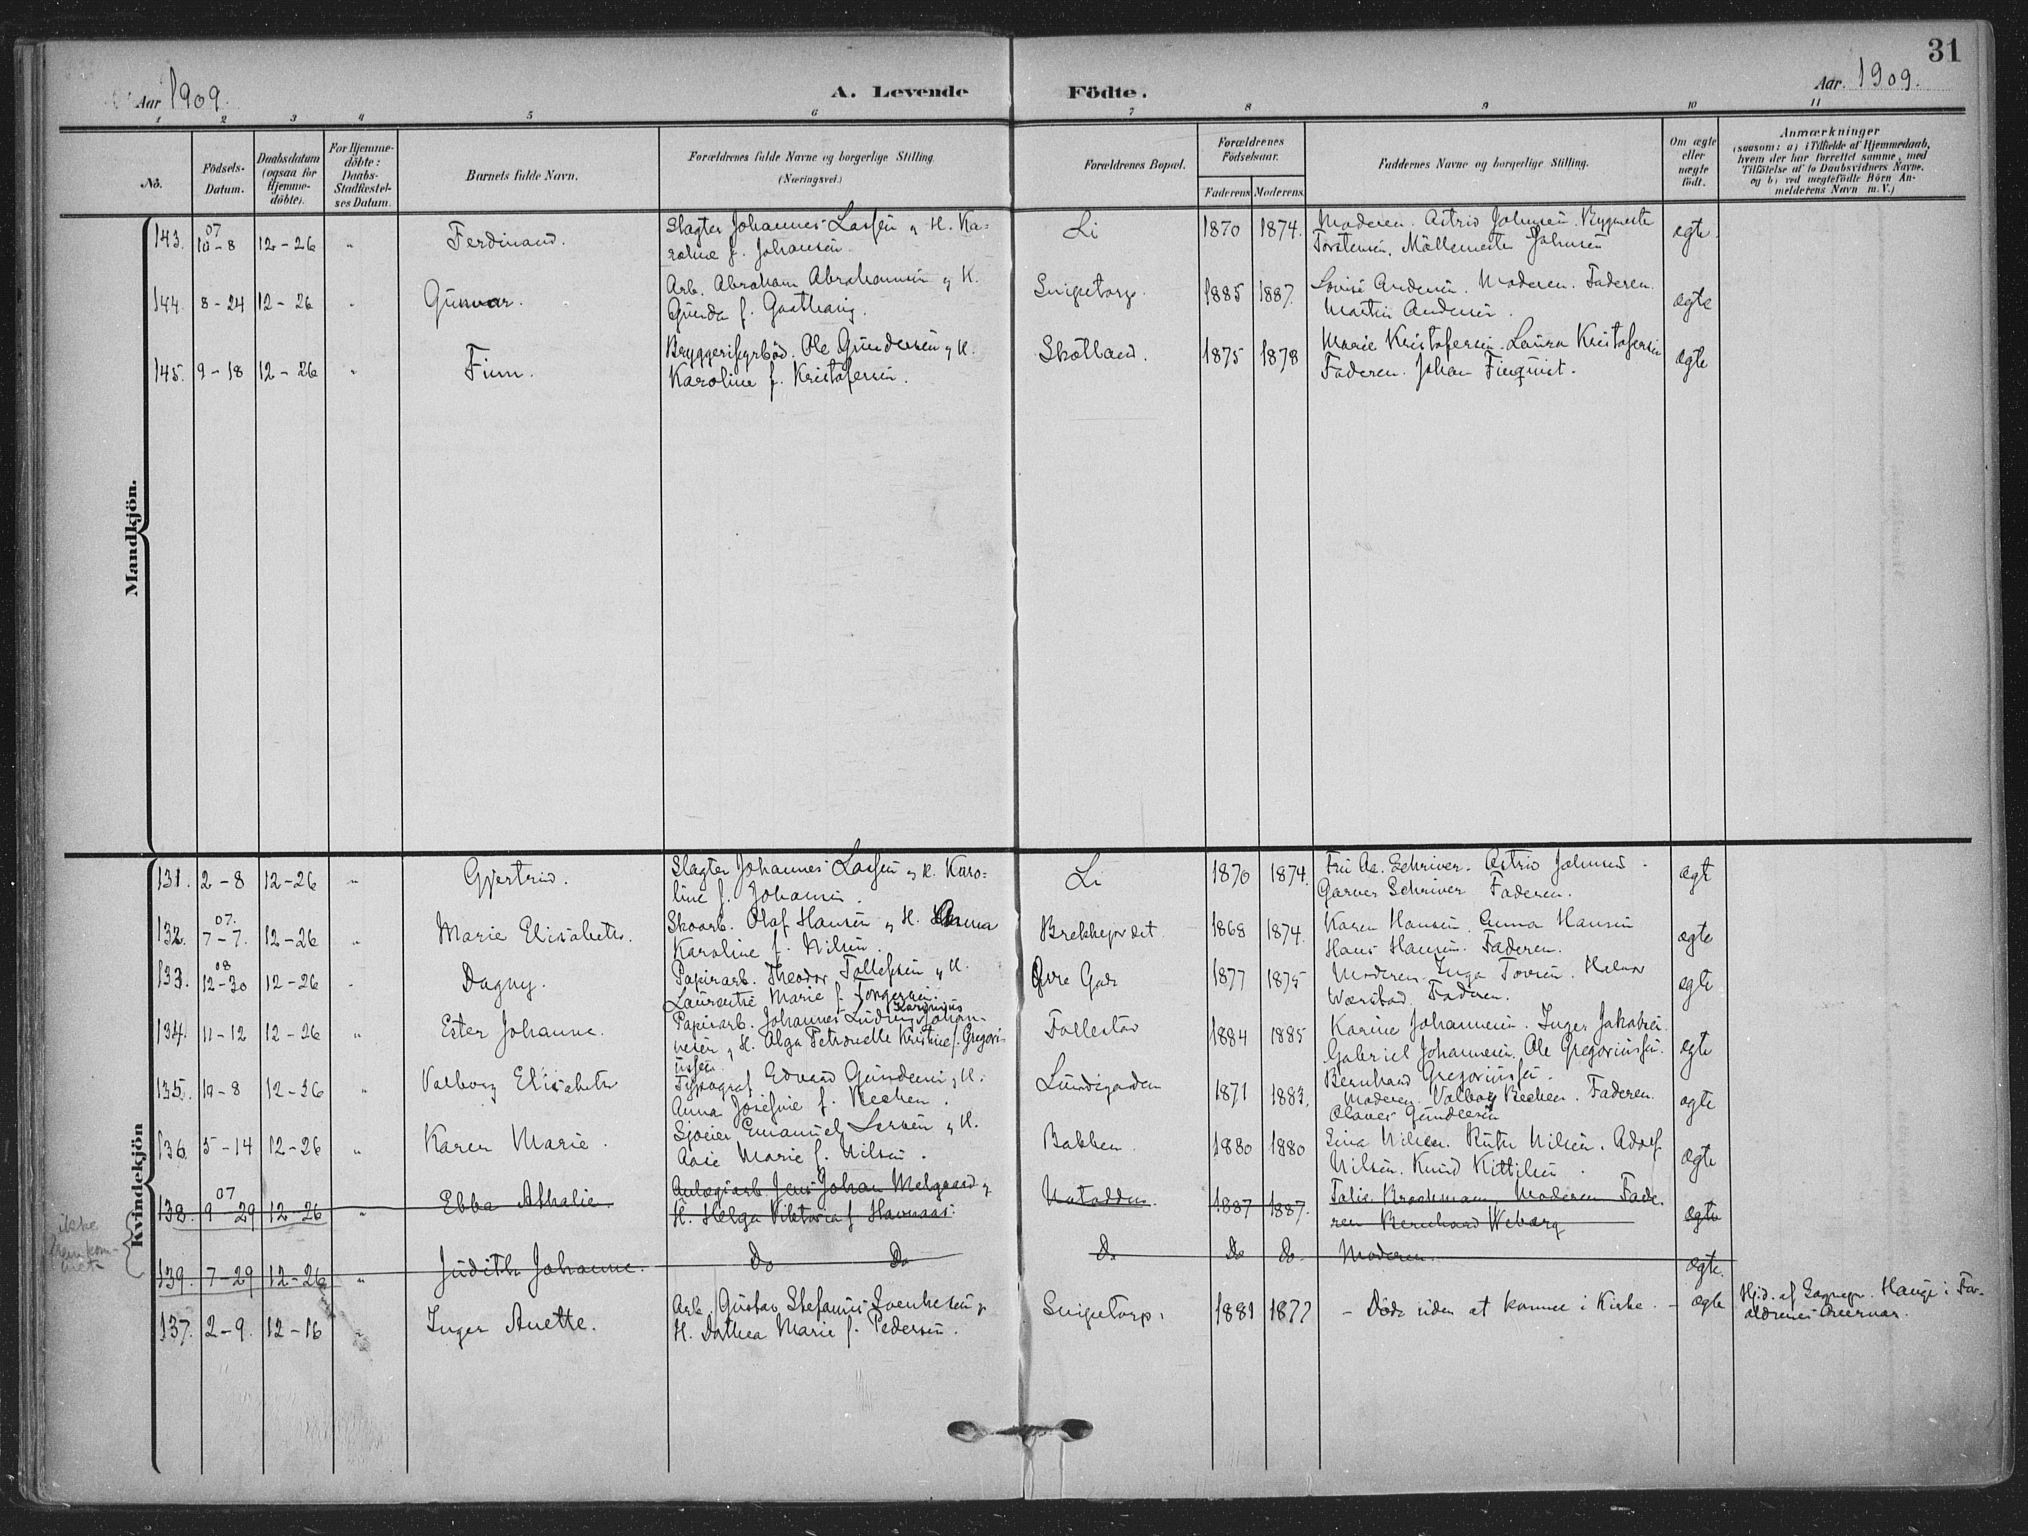 31
Aar 1909.
A. Levende
Födte.
Aar. 1909.
1 2 3 4 5 6 7 8 9 10 11
No.
Födsels-
Datum.
Daabsdatum
(ogsaa for
Hjemme-
döbte).
For Hjemme-
döbte:
Daabs-
Stadfæstel-
ses Datum.
Barnets fulde Navn.
Forældrenes fulde Navne og borgerlige Stilling.
(Næringsvei.)
Forældrenes Bopæl.
Forældrenes
Födselsaar.
Faderens Moderens.
Faddernes Navne og borgerlige Stilling.
Om ægte
eller
uægte
födt.
Anmærkninger
(saasom: a) i Tilfælde af Hjemmedaab,
hvem der har forrettet samme, med
Tilföielse af to Daabsvidners Navne,
og b) ved uægtefödte Börn An-
melderens Navn m. V.)
Mandkjön.
143. 07 10-8 12-26 " Ferdinand. Slagter Johannes Larsen og H. Ka-
roline f. Johansen. Li 1870 1874. Moderen. Astrid Johnsen. Bygmester
Torstensen, Møllemester Johnsen ægte.
144. 8-24 12-26 " Gunvar. Arb. Abraham Abrahamsen og H.
Gunda f. Gaathaug. Snipetorp. 1885 1887. Lovise Andersen. Moderen. Faderen.
Martin Andersen. ægte
145. 9-18 12-26 " Finn. Bryggerifyrbød. Ole Gundersen og H.
Karoline f. Kristofersen. Skotland. 1875 1878 Marie Kristofersen. Laura Kristofersen
Faderen. Johan Finquist. ægte
Kvindekjön
131. 2-8 12-26 " Gjertrud. Slagter Johannes Larsen og H. Karo-
line f. Johansen. Li 1870 1874. Fru Aa. Schriver. Astrid Johnsen.
Garver Schriver. Faderen. ægte
132. 07. 7-7. 12-26 " Marie Elisabeth. Skoarb. Olaf Hansen og H. Anna
Karoline f. Nilsen. Brekkejordet. 1868 1874. Karen Hansen. Anna Hansen
Hans Hansen. Faderen. ægte
133. 08 12-30 12-26 " Dagny. Papirarb. Theodor Tollefsen og H.
Laurentse Marie f. Torgersen. Øvre Gade 1877 1875 Moderen. Inga Tovsen. Helmer
Værstad. Faderen. ægte
134. 11-12 12-26 " Ester Johanne. Papirarb. Johannes Ludvig Johan-
nesen og H. Alga Petronelle Kristine f. Gregori-
ussen. Follestad 1884 1885 Karine Johannesen. Inger Jakobsen.
Gabriel Johannesen. Ole Gregoriussen.
Bernhard Gregoriussen. ægte
135. 10-8 12-26 " Valborg Elisabeth Typograf Edvard Gundersen og H.
Anna Josefine f. Bechen. Lundegaden 1871 1883. Moderen. Valborg Bechen. Faderen.
Olaves Gundersen ægte
136. 5-14 12-26 " Karen Marie. Sjøeier Emanuel Larsen og H.
Aase Marie f. Nilsen. Bakken 1880 1880 Sina Nilsen. Ruth Nilsen. Adolf
Nilsen. Knud Kittilsen. ægte
138. 07 9-29 12-26 " Ebba Athalie. Anlægsarb. Jens Johan Melgaard og
H. Helga Viktoria f. Havnaas. Notodden. 1887 1887. Talie Brockmann, Moderen. Fade-
ren Bernhard Weberg ægte
ikke
fremkom-
met
139. 7-29 12-26 " Judith Johanne. Do Do Do Do Do Moderen. ægte.
137. 2-9. 12-16 " Inger Anette. Arb. Gustav Stefanus Svenkesen og
H. Dorthea Marie f. Pedersen. Snipetorp. 1881 1877 - Døde uden at komme i Kirke. - ægte Hjd. af Sognepr. Hauge i For-
ældrenes Nærvær.